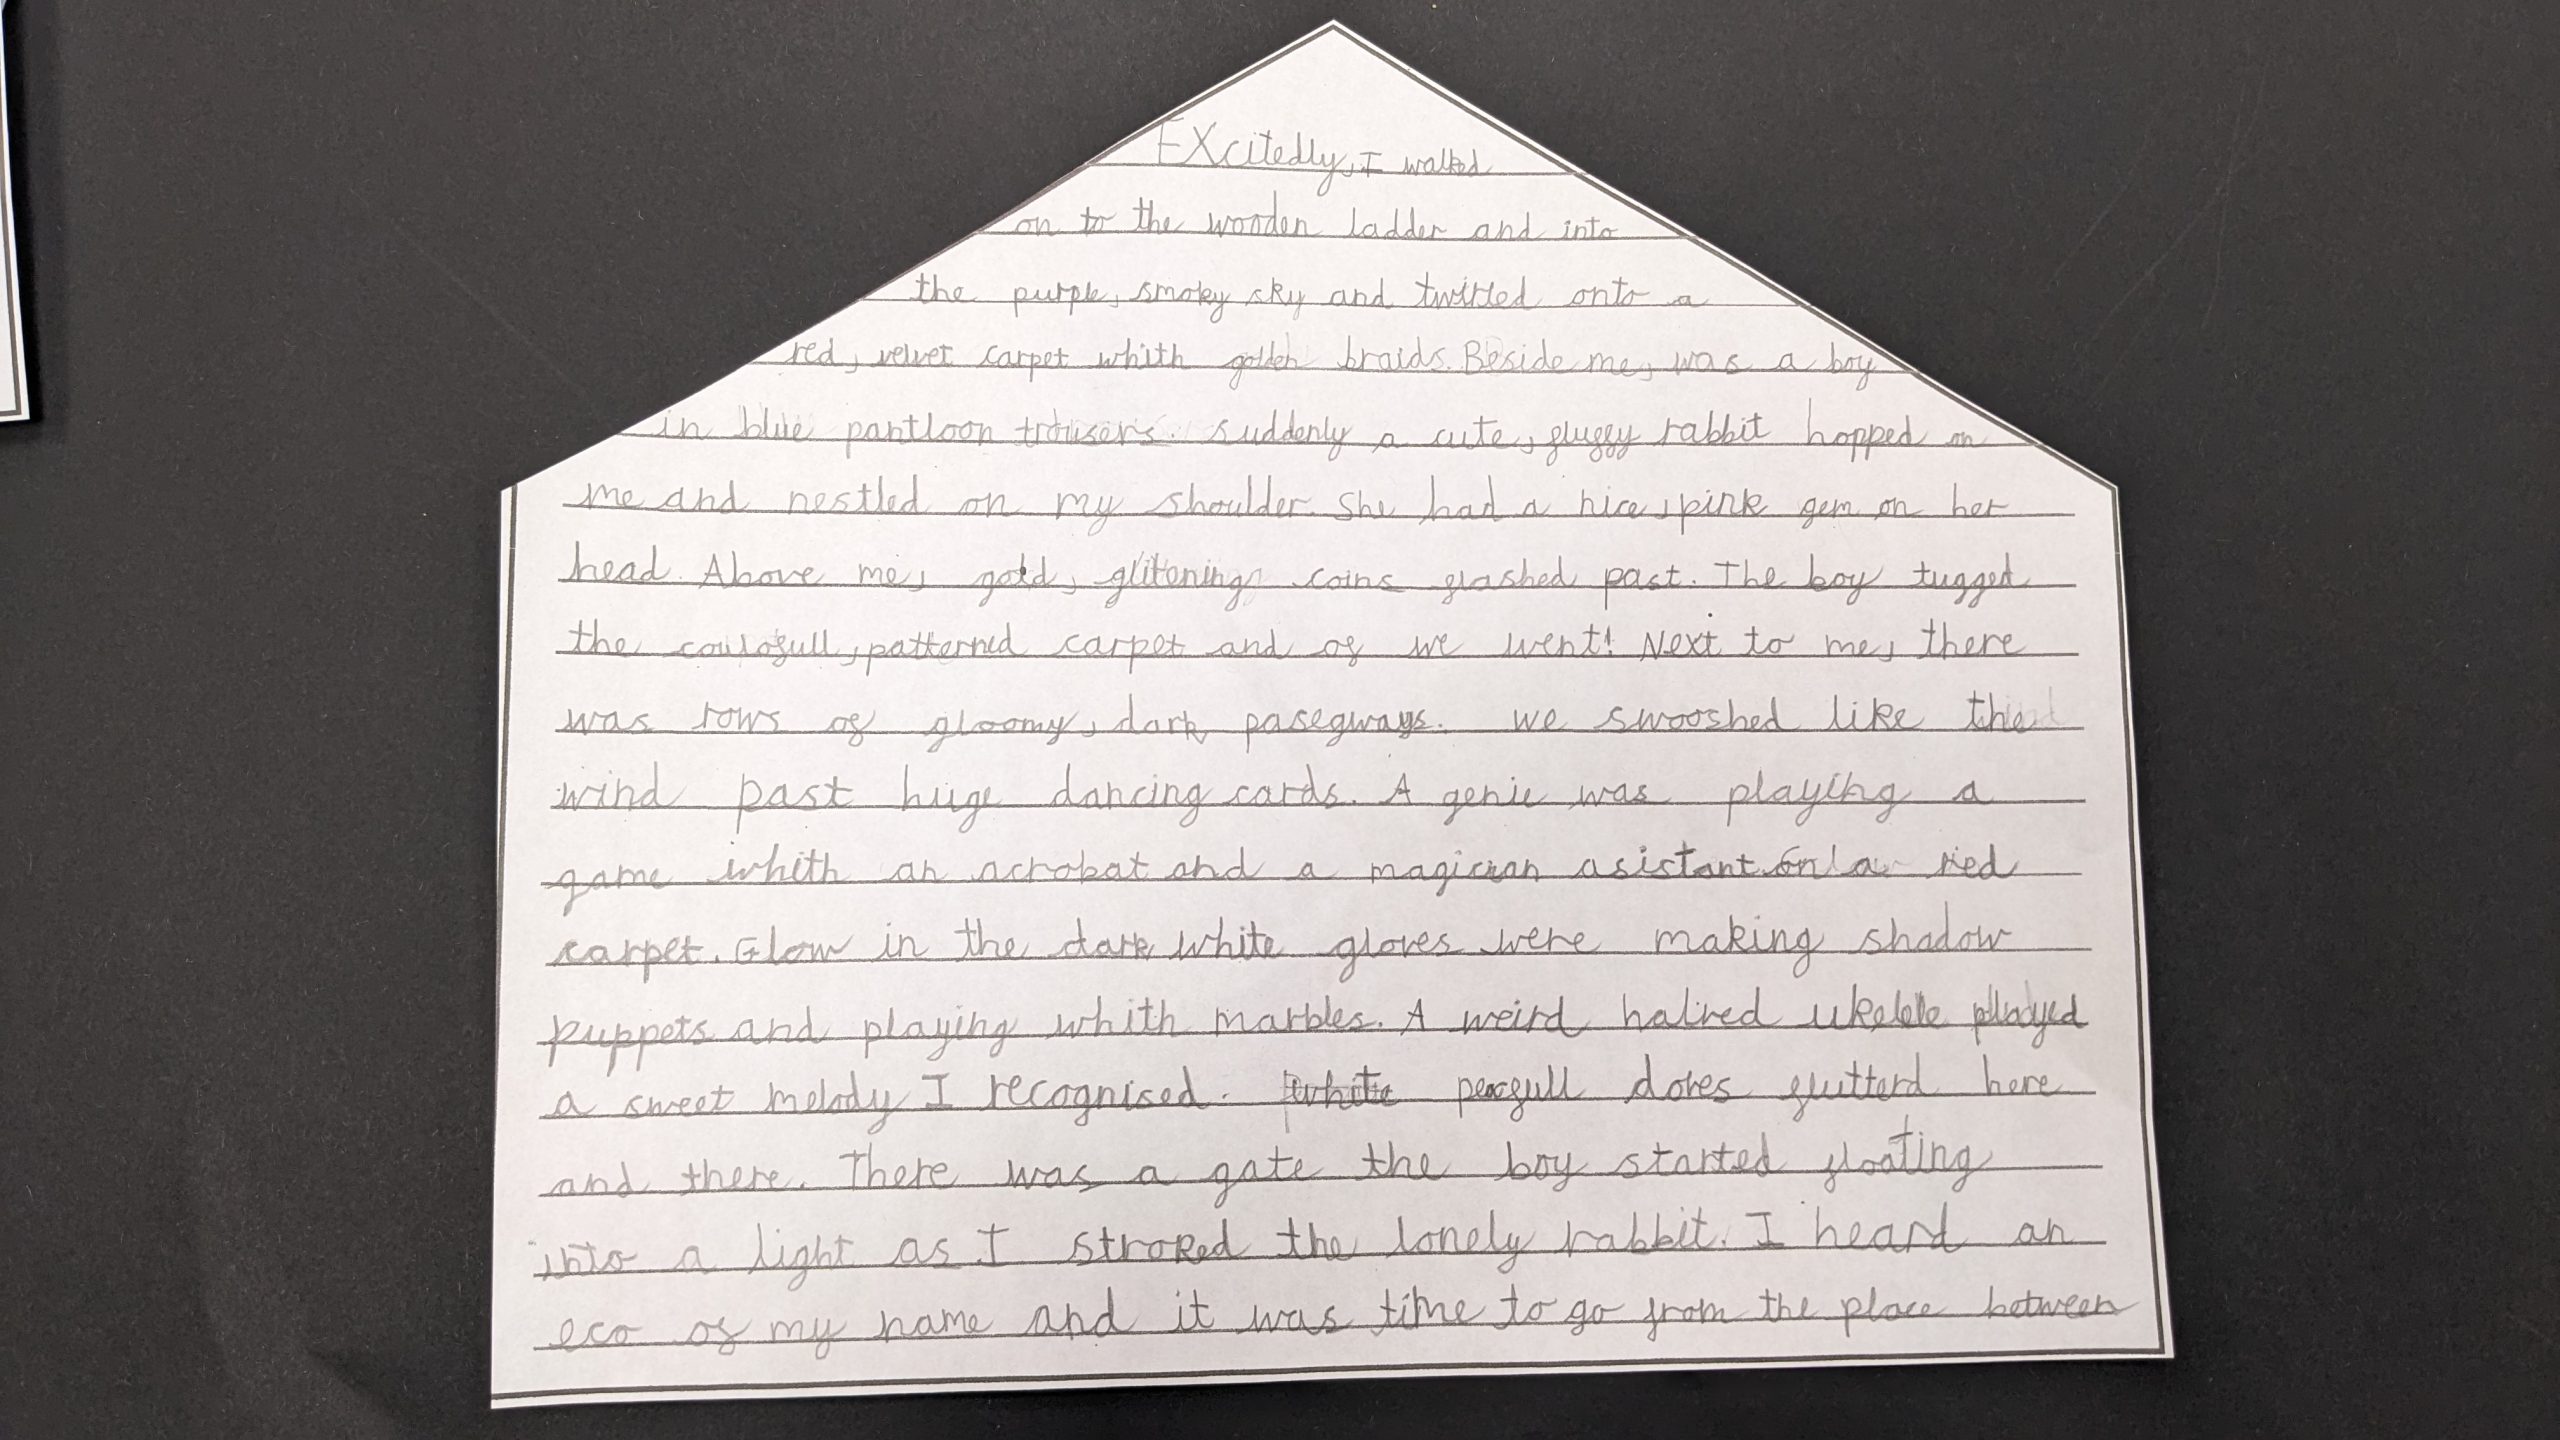 Excitedly, I walked
on to the wooden ladder and into
the purple, smoky sky and twirled onto a
red, velvet carpet whith golden braids. Beside me, was a boy
in blue pantloon trousers. suddenly a cute, fluffy rabbit hopped on
me and nestled on my shoulder. She had a nice, pink gem on her
head. Above me, gold, glitening coins flashed past. The boy tugged
the coulofull, patterned carpet and of we went! Next to me, there
was rows of gloomy, dark pasegways. we swooshed like the
wind past huge dancing cards. A genie was playing a
game whith an acrobat and a magician asistant. On a red
carpet. Glow in the dark white gloves were making shadow
puppets and playing whith marbles. A weird haired ukelele played
a sweet melody I recognised. white peafull doves flutterd here
and there. There was a gate the boy started floating
into a light as I stroked the lonely rabbit. I heard an
eco of my name and it was time to go from the place between